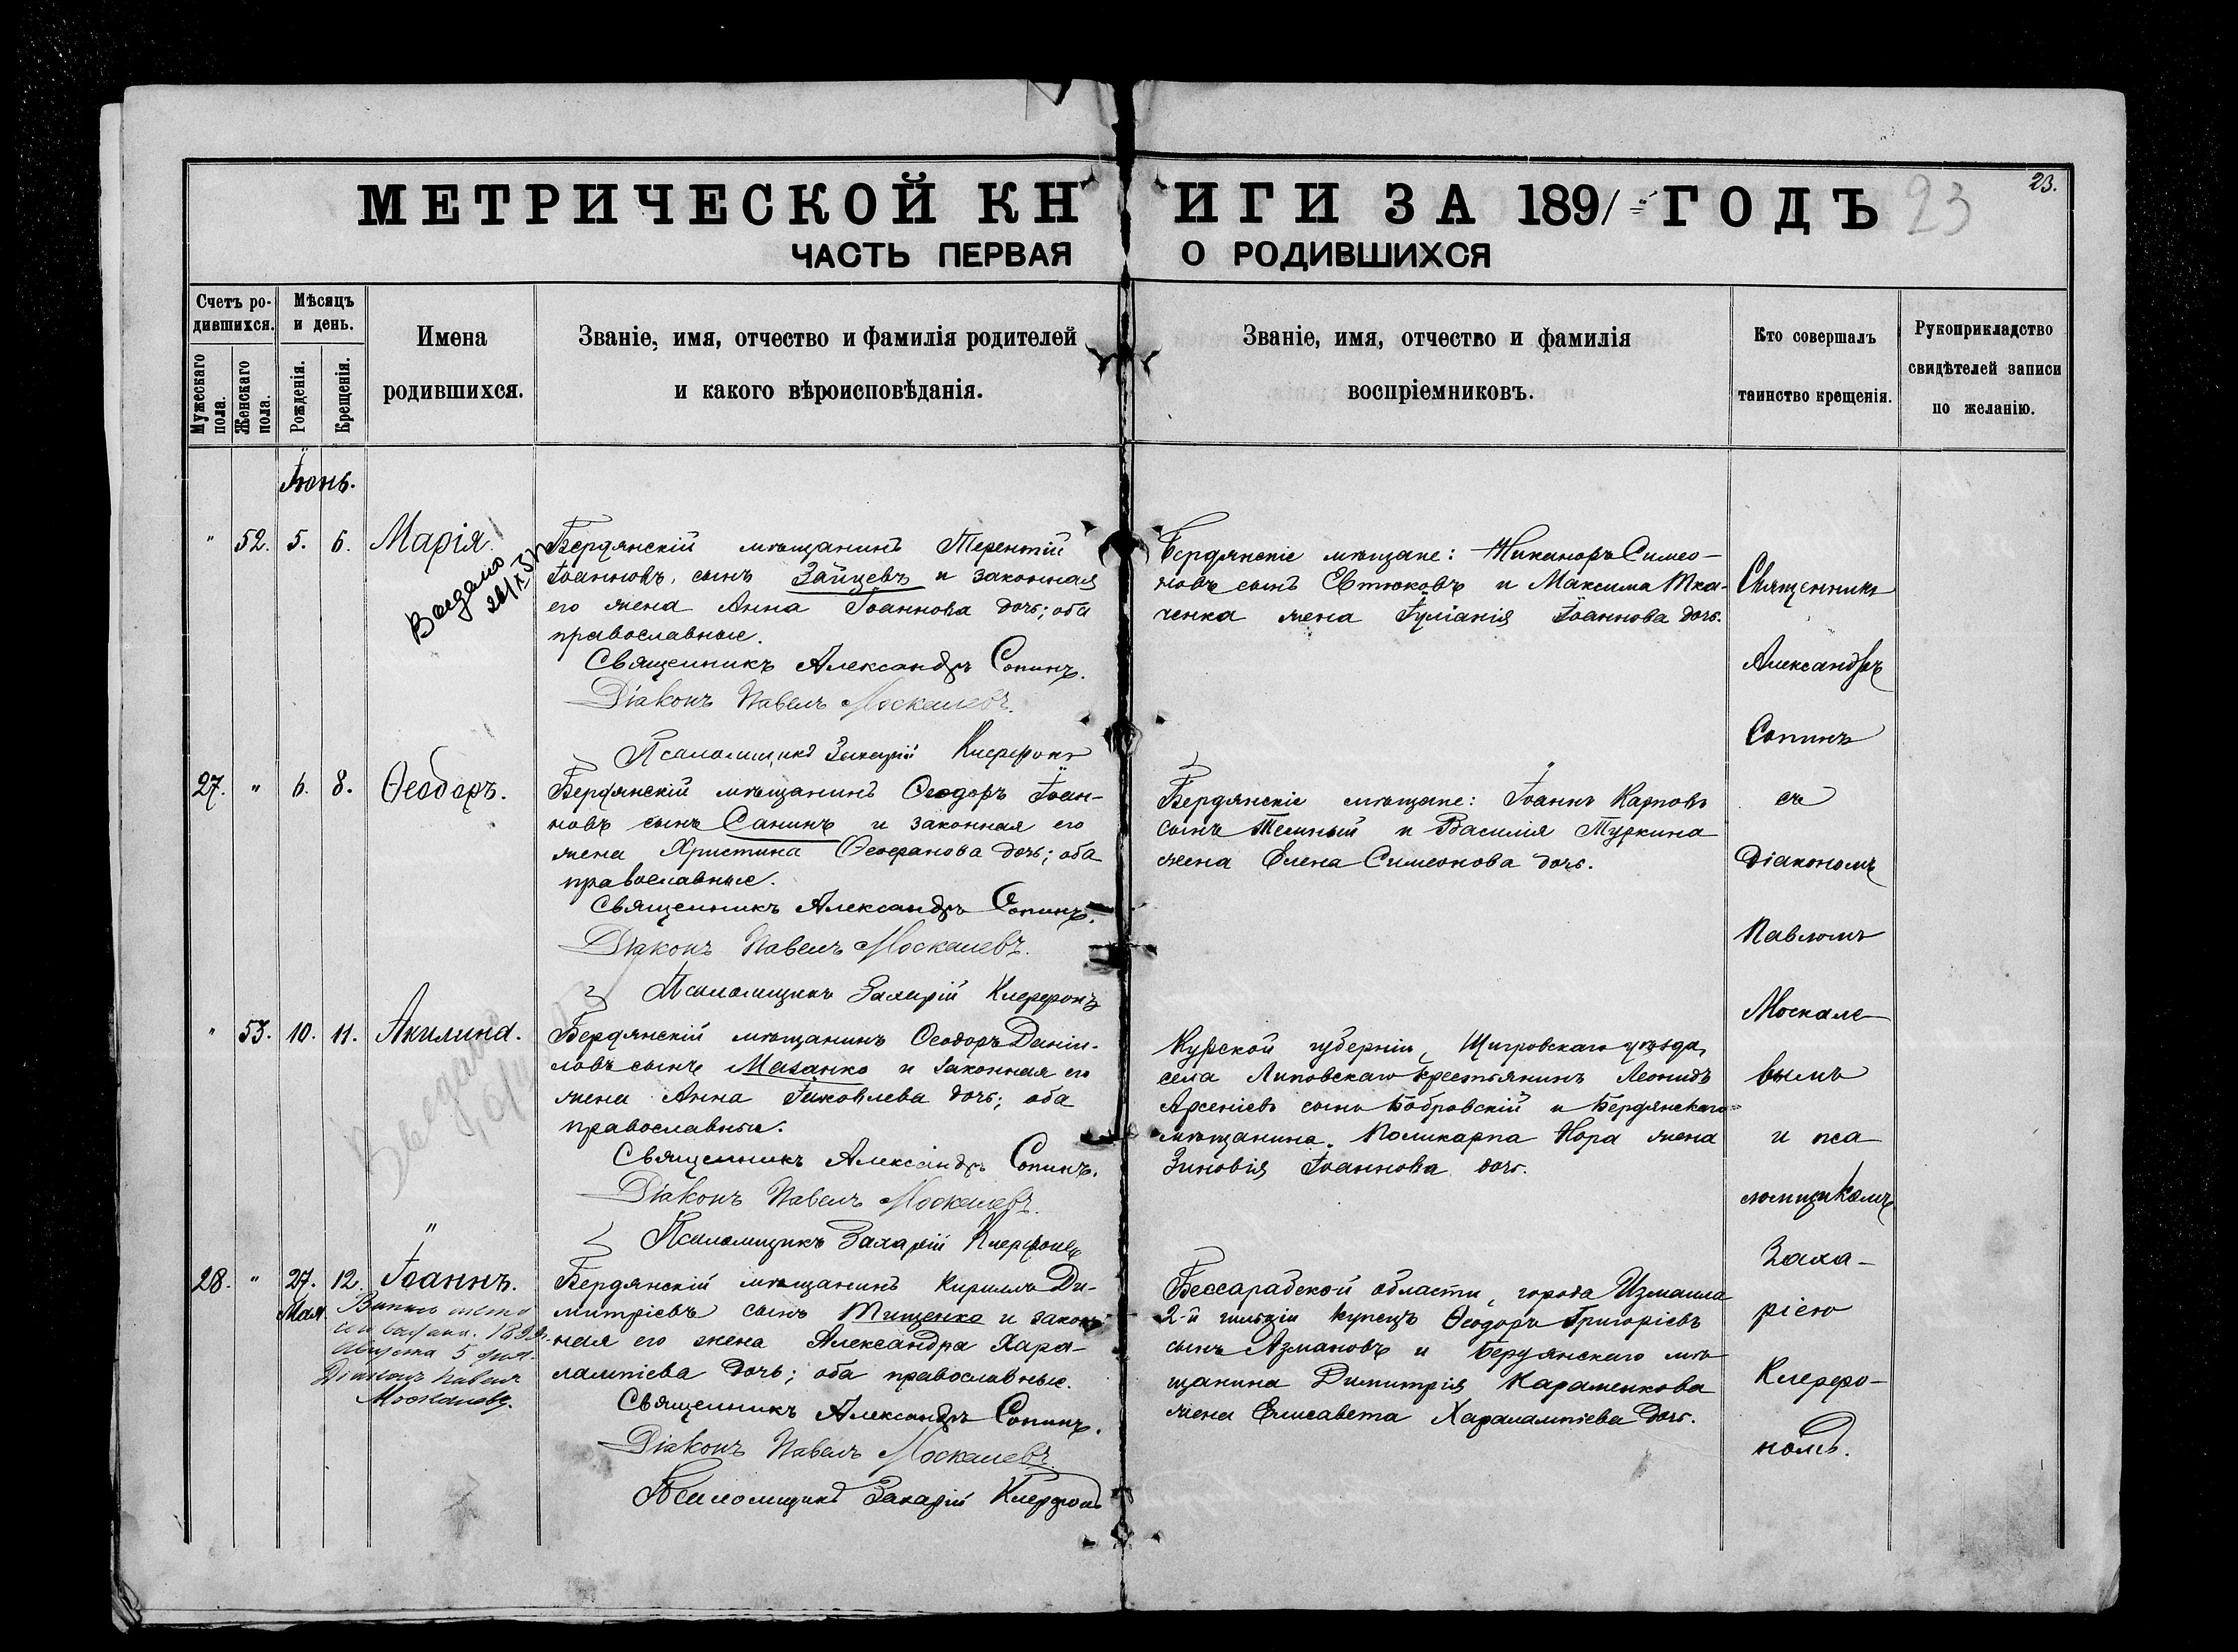 23.
МЕТРИЧЕСКОЙ КНИГИ ЗА 1891 ГОДЪ 23
ЧАСТЬ ПЕРВАЯ О РОДИВШИХСЯ
Счетъ ро-
дившихся.
Мужескаго пола.
Женскаго пола.
Мѣсяцъ
и день.
Рожденія.
Крещенія.
Имена
родившихся.
Званіе, имя, отчество и фамилія родителей
и какого вѣроисповѣданія.
Званіе, имя, отчество и фамилія
воспріемниковъ.
Кто совершалъ
таинство крещенія.
Рукоприкладство
свидѣтелей записи
по желанію.
Іюнь.
" 52. 5. 6. Марія.
Выдано
Бердянскій мѣщанинъ Терентій
Іоанновъ сынъ Зайцевъ и законная
его жена Анна Іоаннова дочь; оба
православные.
Священникъ Александръ Сопинъ.
Діаконъ Павелъ Москалевъ.
Псаломщикъ Захарій Клерфонъ
Бердянскіе мѣщане: Никаноръ Симео-
новъ сынъ Евтюковъ и Максима Тка-
ченка жена Іуліанія Іоаннова дочь.
27. " 6. 8. Ѳеодоръ.
Бердянскій мѣщанинъ Ѳеодоръ Іоан-
новъ сынъ Санинъ и законная его
жена Христина Ѳеофанова дочь; оба
православные.
Священникъ Александръ Сопинъ.
Діаконъ Павелъ Москалевъ.
Псаломщикъ Захарій Клерфонъ
Бердянскіе мѣщане: Іоаннъ Карповъ
сынъ Темный и Василія Туркина
жена Елена Симеонова дочь.
" 53. 10. 11. Акилина.
Выдано
Бердянскій мѣщанинъ Ѳеодоръ Даніи-
ловъ сынъ Мазанко и законная его
жена Анна Іаковлева дочь; оба
православные.
Священникъ Александръ Сопинъ.
Діаконъ Павелъ Москалевъ.
Псаломщикъ Захарій Клерфонъ
Курской губерніи, Щигровскаго уѣзда,
села Липовскаго крестьянинъ Леонидъ
Арсеніевъ сынъ Бобровскій и Бердянскаго
мѣщанина Поликарпа Нора жена
Зиновія Іоаннова дочь.
28. " 27. 12. Іоаннъ.
Мая
1899.
августа 5 дня.
Діаконъ Павелъ
Москалевъ.
Бердянскій мѣщанинъ Кириллъ Ди-
митріевъ сынъ Тищенко и закон-
ная его жена Александра Хара-
лампіева дочь; оба православные.
Священникъ Александръ Сопинъ.
Діаконъ Павелъ Москалевъ.
Псаломщикъ Захарій Клерфонъ
Бессарабской области, города Измаила
2-й гильдіи купецъ Ѳеодоръ Григоріевъ
сынъ Азмановъ и Бердянскаго мѣ-
щанина Димитрія Караменкова
жена Елисавета Харалампіева дочь.
Священникъ
Александръ
Сопинъ
съ
діакономъ
Павломъ
Москале-
вымъ
и пса-
ломщикомъ
Заха-
ріею
Клерфо-
номъ.